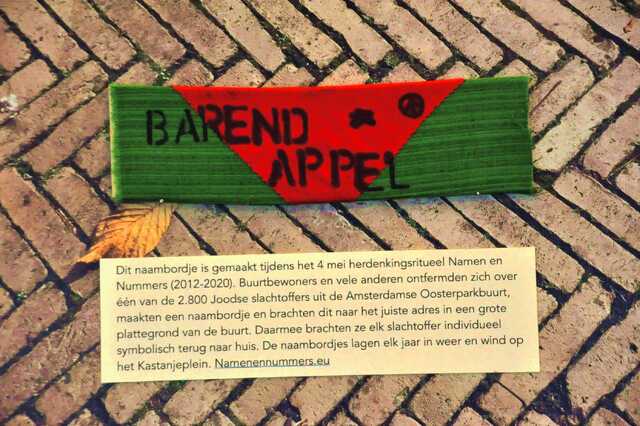 BAREND
APPEL
Dit naambordje is gemaakt tijdens het 4 mei herdenkingsritueel Namen en
Nummers (2012-2020). Buurtbewoners en vele anderen ontfermden zich over
één van de 2.800 Joodse slachtoffers uit de Amsterdamse Oosterparkbuurt,
maakten een naambordje en brachten dit naar het juiste adres in een grote
plattegrond van de buurt. Daarmee brachten ze elk slachtoffer individueel
symbolisch terug naar huis. De naambordjes lagen elk jaar in weer en wind op
het Kastanjeplein. Namenennummers.eu